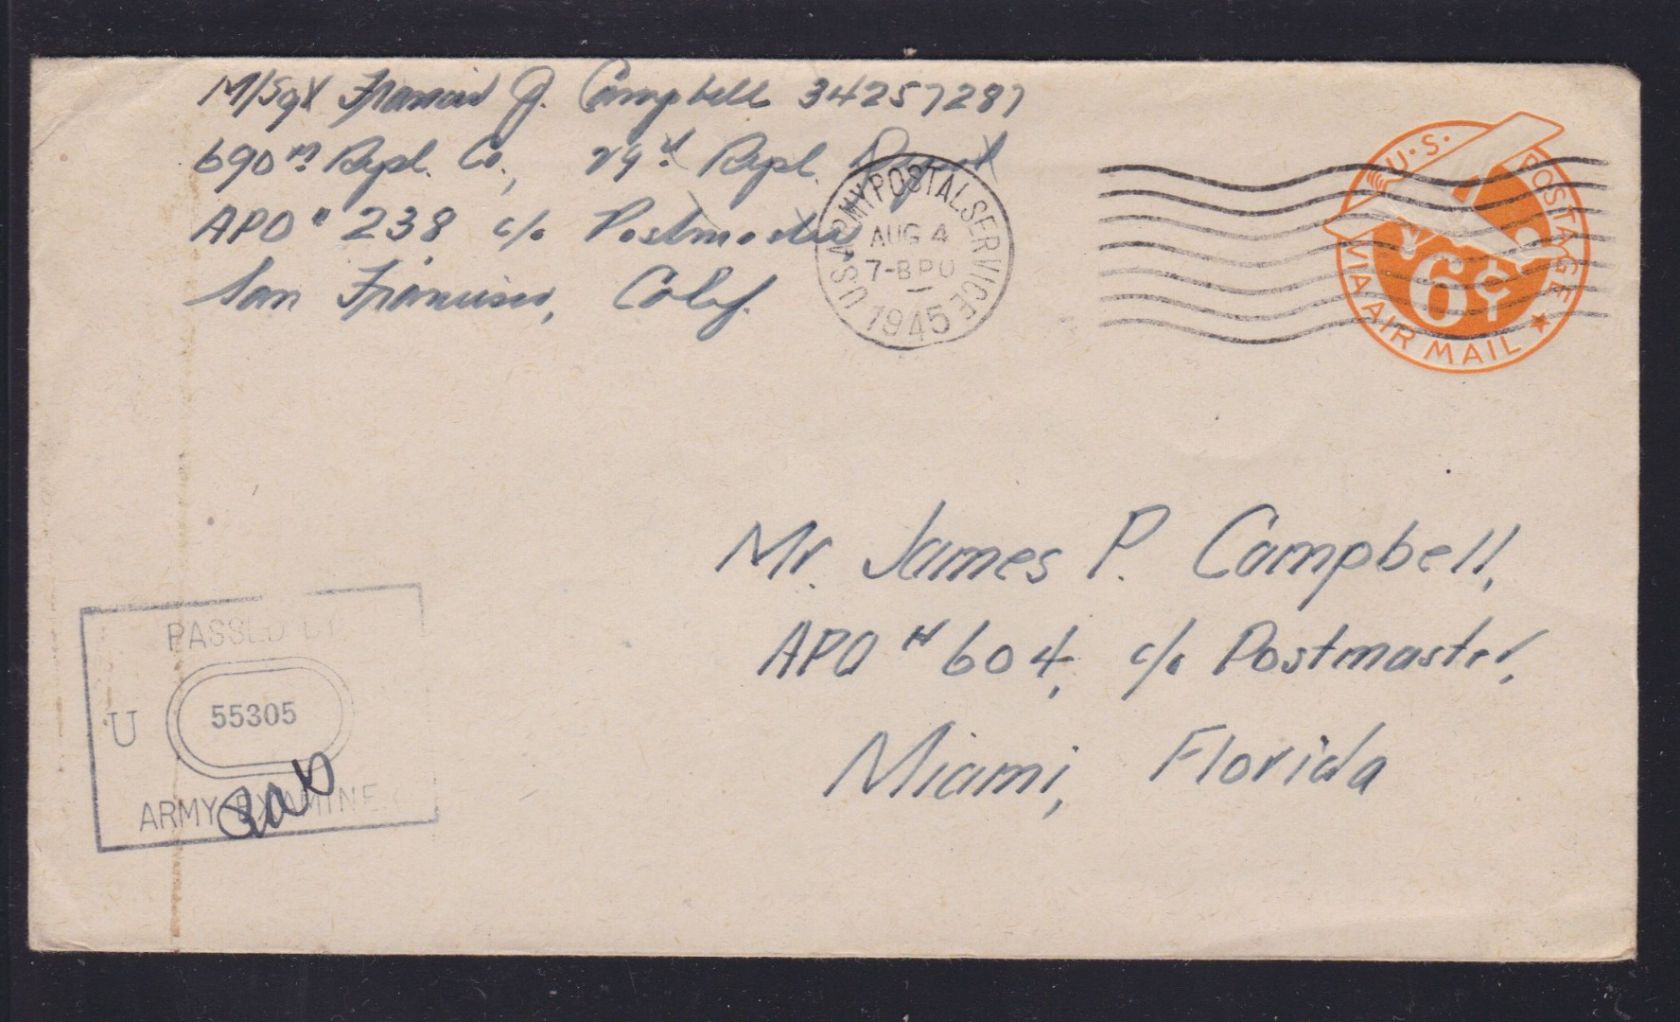 M/Sgt Francis J. Campbell 34257287
690th Repl. Co., 29th Repl. Depot
APO # 238 c/o Postmaster
San Francisco, Calif.
U.S. ARMY POSTAL SERVICE
AUG 4
7-B PO
1945
U.S. POSTAGE
6¢
VIA AIR MAIL
Mr. James P. Campbell,
APO # 604, c/o Postmaster,
Miami, Florida
PASSED BY
U
55305
ARMY EXAMINER